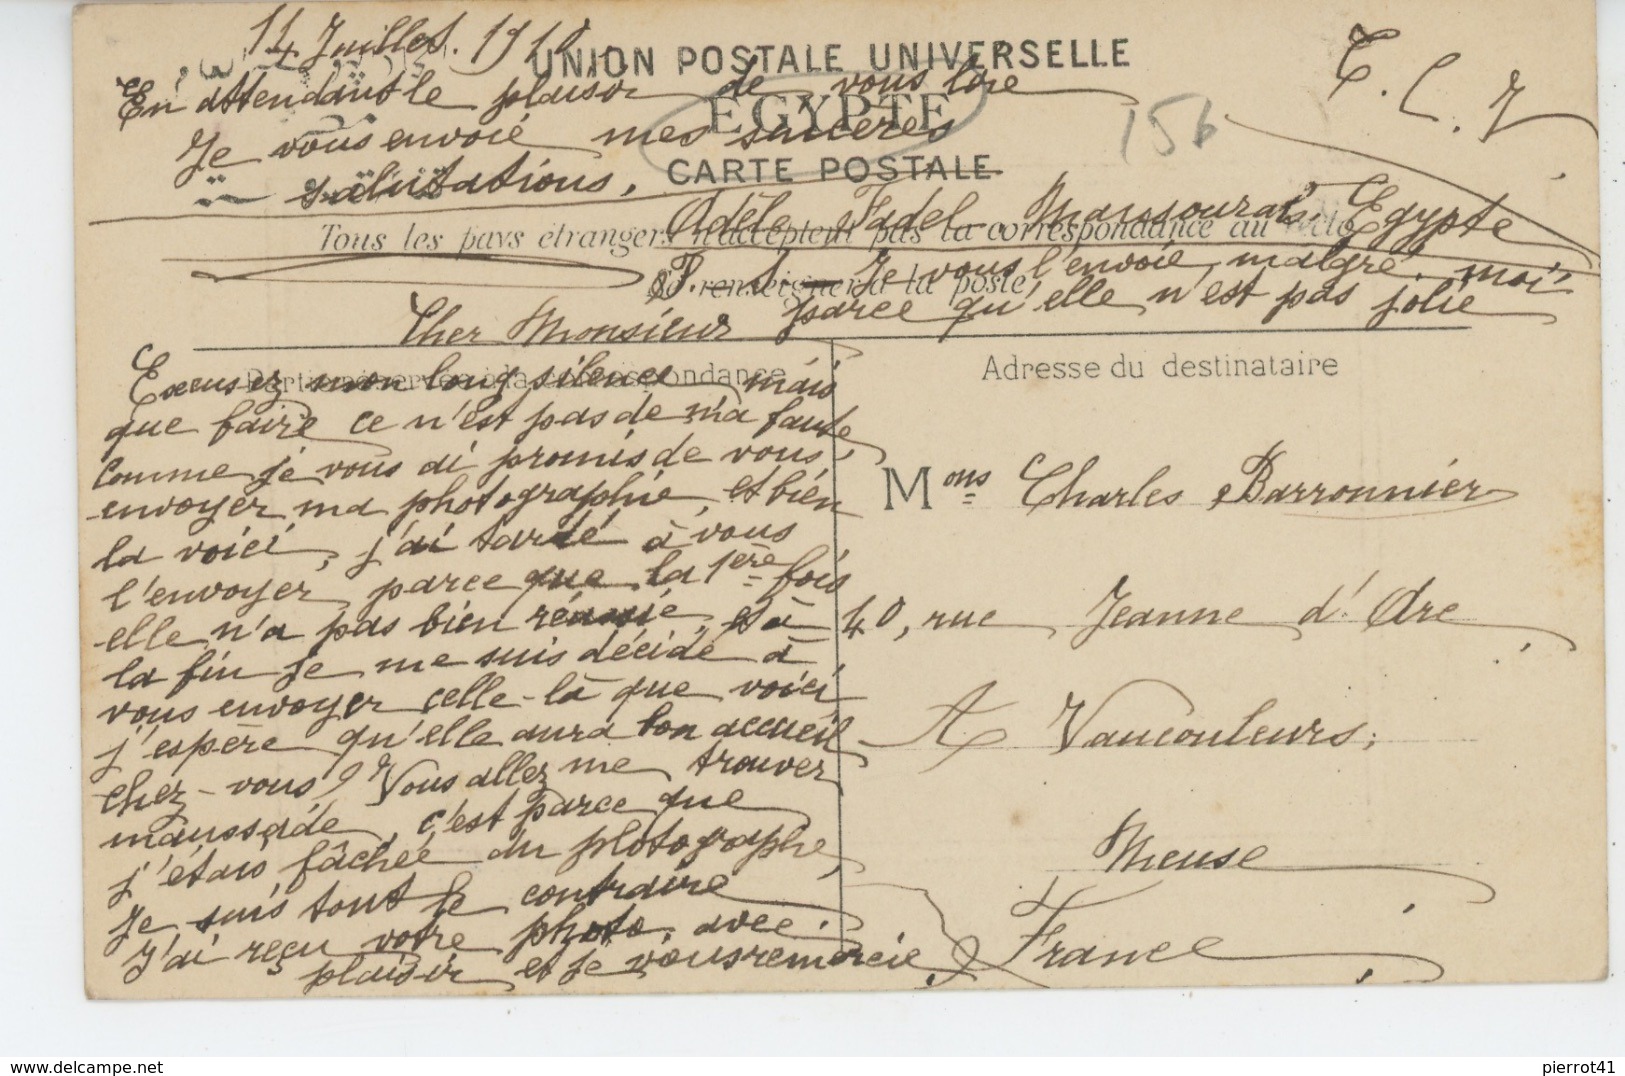 14 Juillet. 1910
UNION POSTALE UNIVERSELLE
En attendant le plaisir de vous lire
EGYPTE
T. C. J.
156
Je vous envoie mes sincères
CARTE POSTALE
salutations,
Adèle Fadel. Mansourah, Egypte
Tous les pays étrangers n'acceptent pas la correspondance au recto
se renseigner à la poste
P. S. Je vous l'envoie, malgré moi
parce qu'elle n'est pas jolie
Cher Monsieur
Partie réservée à la correspondance
Adresse du destinataire
Excusez mon long silence mais
que faire ce n'est pas de ma faute,
comme je vous ai promis de vous
envoyer ma photographie, et bien
la voici, j'ai tardé à vous
l'envoyer, parce que la 1ère fois
elle n'a pas bien réussie, et à
la fin je me suis décidé à
vous envoyer celle-là que voici,
j'espère qu'elle aura bon accueil
chez-vous? Vous allez me trouver
maussade, c'est parce que
j'étais fâchée du photographe,
Je suis tout le contraire
J'ai reçu votre photo, avec
plaisir et je vous remercie.
Mons Charles Barronnier
40, rue Jeanne d'Arc,
A Vaucouleurs,
Meuse
France
pierrot41